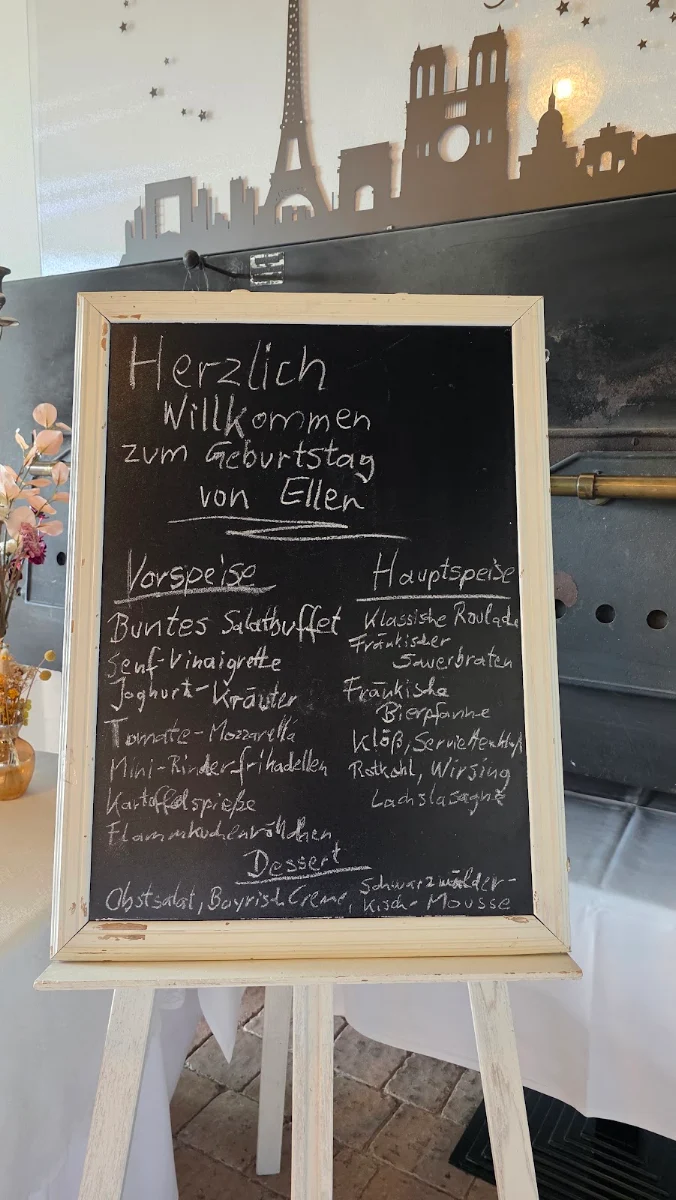 Herzlich
Willkommen
zum Geburtstag
von Ellen
Vorspeise
Buntes Salatbuffet
Senf-Vinaigrette
Joghurt-Kräuter
Tomate-Mozzarella
Mini-Rinderfrikadellen
Kartoffelspieße
Flammkuchenröllchen
Hauptspeise
Klassische Roulade
Fränkischer
Sauerbraten
Fränkische
Bierpfanne
Klöß, Serviettenklöß
Rotkohl, Wirsing
Lachslasagne
Dessert
Obstsalat, Bayrisch Creme, Schwarzwälder-
Kisch-Mousse